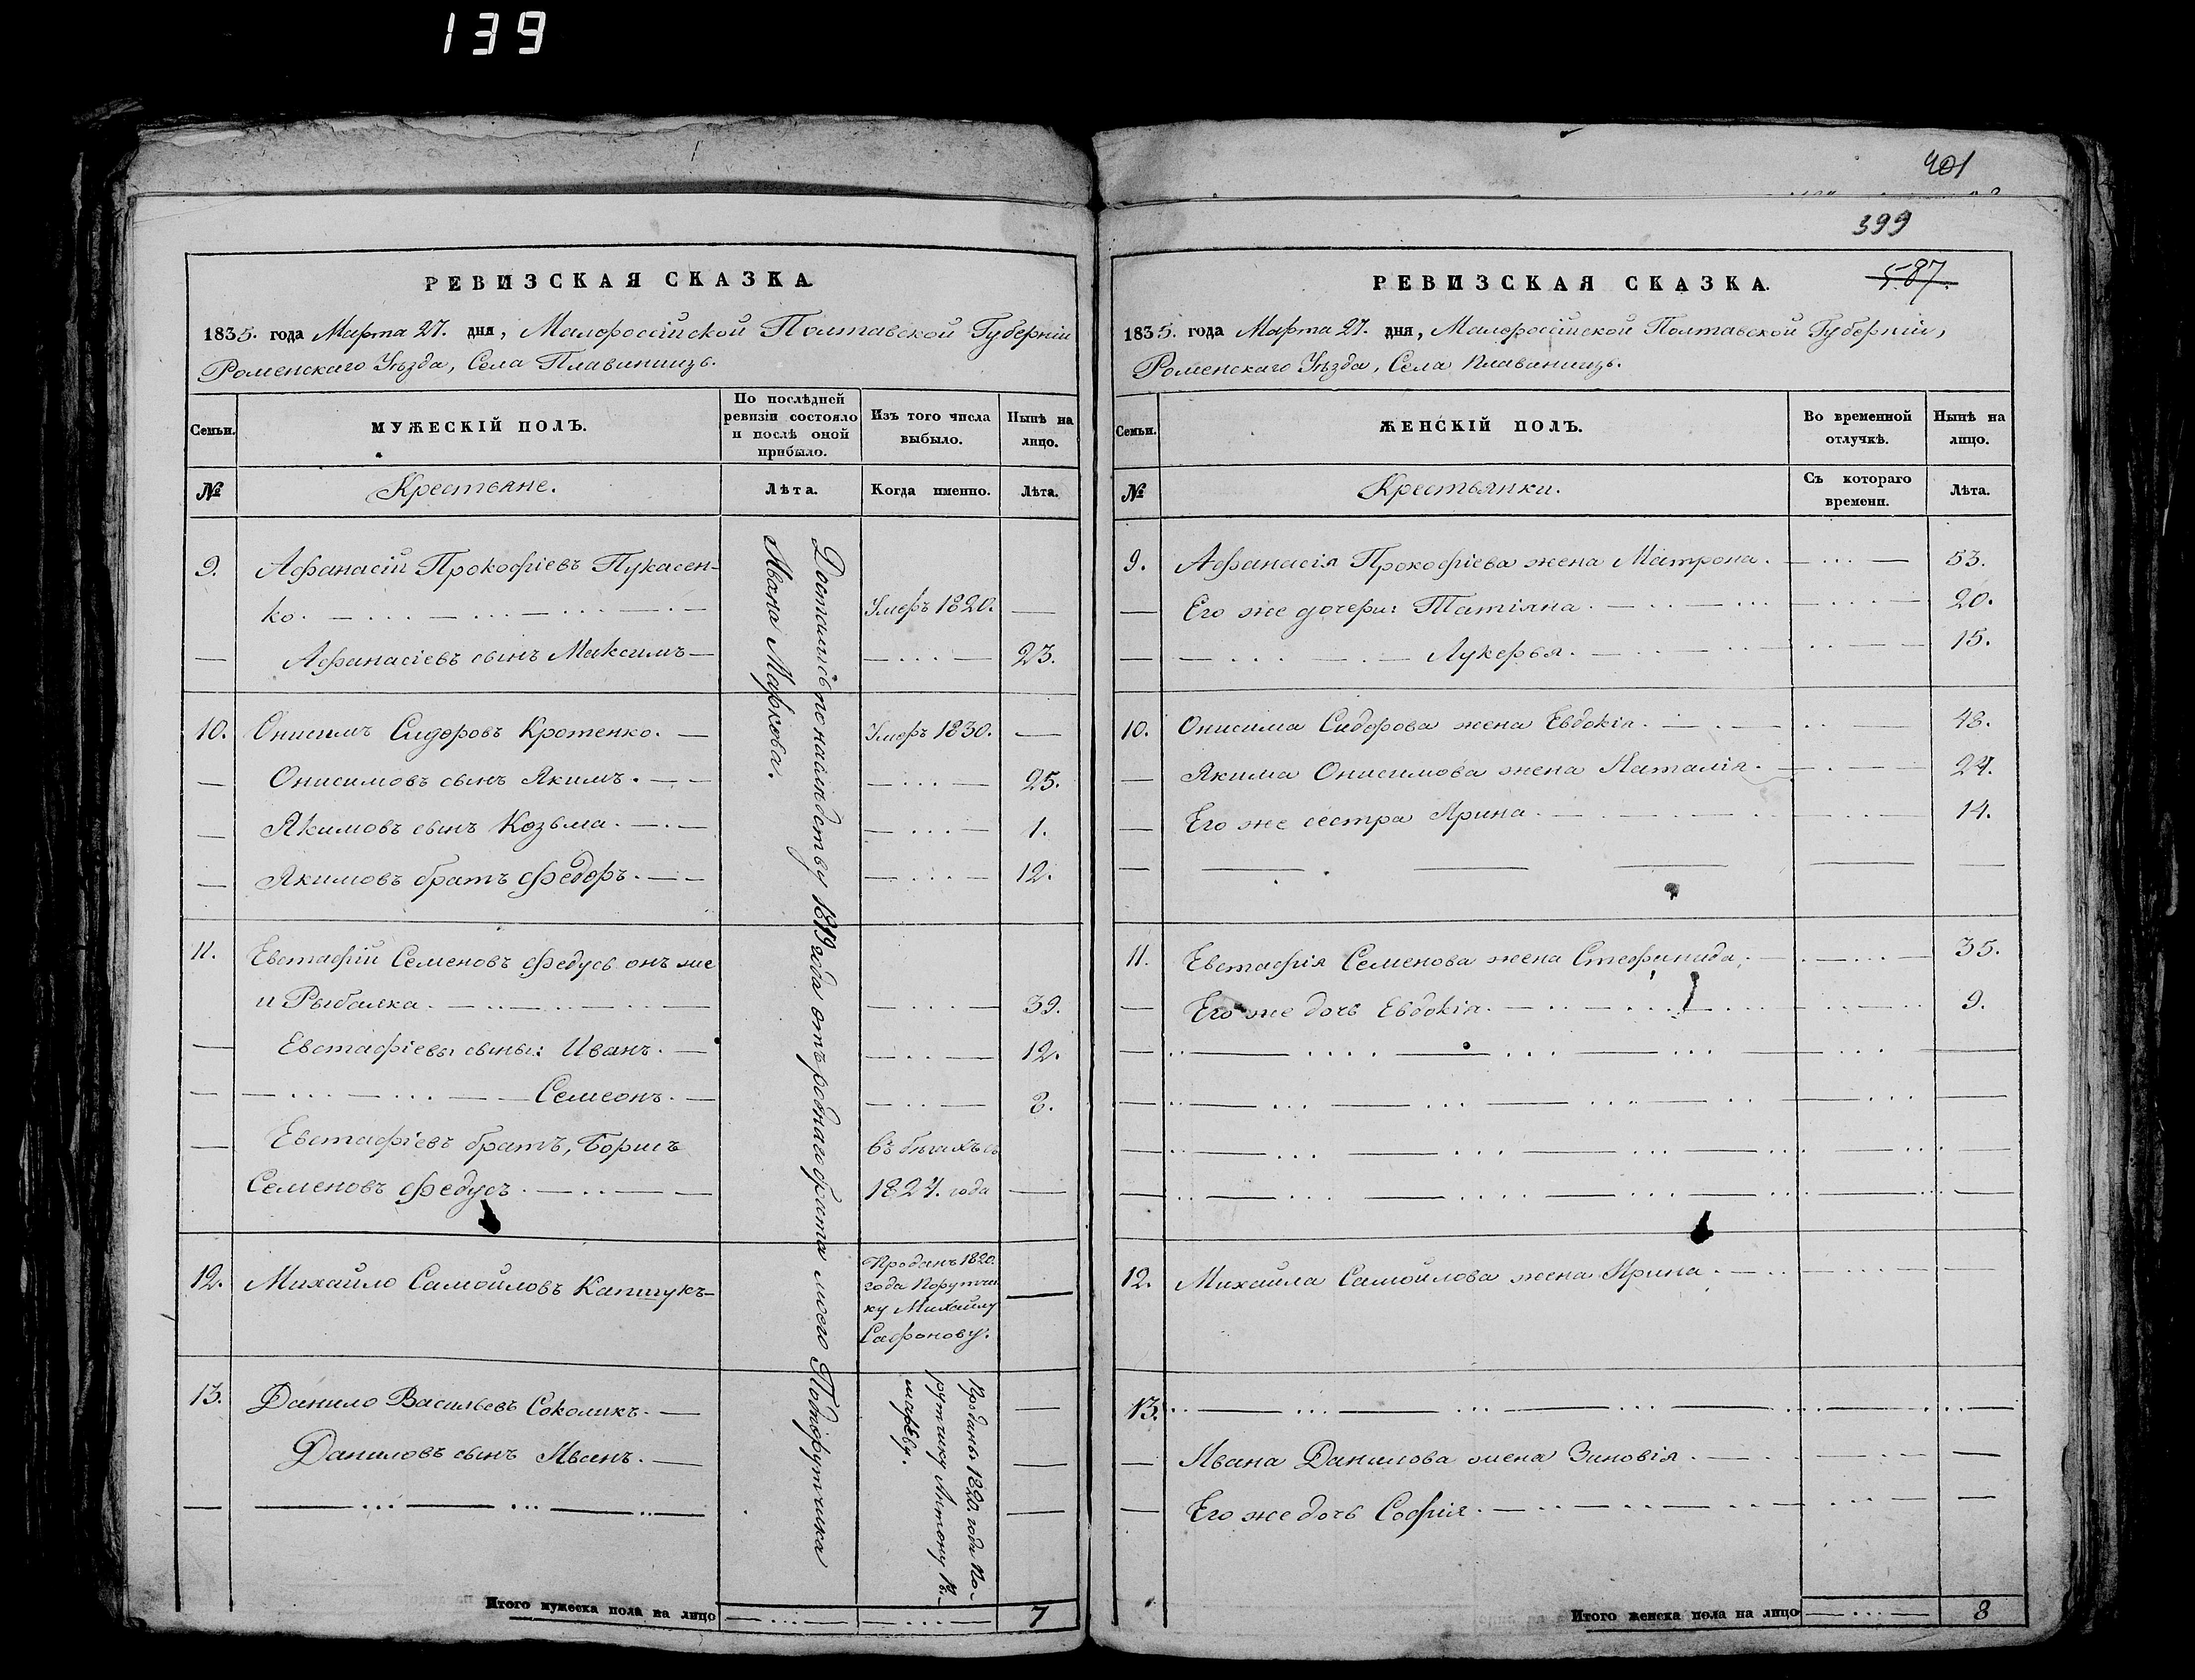 139
401
399
РЕВИЗСКАЯ СКАЗКА
1835. года Марта 27. дня, Малороссійской Полтавской Губерніи
Роменскаго Уѣзда, Села Плавинищъ.
Семьи.
МУЖЕСКІЙ ПОЛЪ.
По послѣдней ревизіи состояло и послѣ оной прибыло.
Изъ того числа выбыло.
Нынѣ на лицо.
№
Крестьяне.
Лѣта.
Когда именно.
Лѣта.
9. Афанасій Прокофіевъ Пукасен-
ко. Умеръ 1820.
Афанасіевъ сынъ Максимъ 23.
10. Онисимъ Сидоровъ Кротенко. Умеръ 1830.
Онисимовъ сынъ Якимъ. 25.
Якимовъ сынъ Козьма. 1.
Якимовъ братъ Федоръ. 12.
11. Евстафій Семеновъ Федусь онъ же
и Рыбалка. 39.
Евстафіевы сыны: Иванъ. 12.
Семеонъ. 2.
Евстафіевъ братъ, Борисъ въ бѣгахъ съ
Семеновъ Федусь. 1827. года
12. Михайло Самойловъ Капшукъ Проданъ 1820.
года Поручи-
ку Михайлу
Сафонову.
13. Данило Васильевъ Соколикъ.
Даниловъ сынъ Иванъ.
Проданы 1820. года По-
ручику Антону
Достались по наслѣдству 1819 года отъ роднаго брата моего Подпоручика
Ивана Маркова.
Итого мужеска пола на лицо 7
РЕВИЗСКАЯ СКАЗКА. 587.
1835. года Марта 27. дня, Малороссійской Полтавской Губерніи,
Роменскаго Уѣзда, Села Плавинищъ.
Семьи.
ЖЕНСКІЙ ПОЛЪ.
Во временной отлучкѣ.
Нынѣ на лицо.
№
Крестьянки.
Съ котораго времени.
Лѣта.
9. Афанасія Прокофіева жена Матрона. 53.
Его же дочери: Татіяна. 20.
Лукерья. 15.
10. Онисима Сидорова жена Евдокія. 48.
Якима Онисимова жена Наталія. 24.
Его же сестра Ярина. 14.
11. Евстафія Семенова жена Стефанида, 35.
Его же дочь Евдокія. 9.
12. Михайла Самойлова жена Ирина.
13.
Ивана Данилова жена Зиновія.
Его же дочь Софія.
Итого женска пола на лицо 8